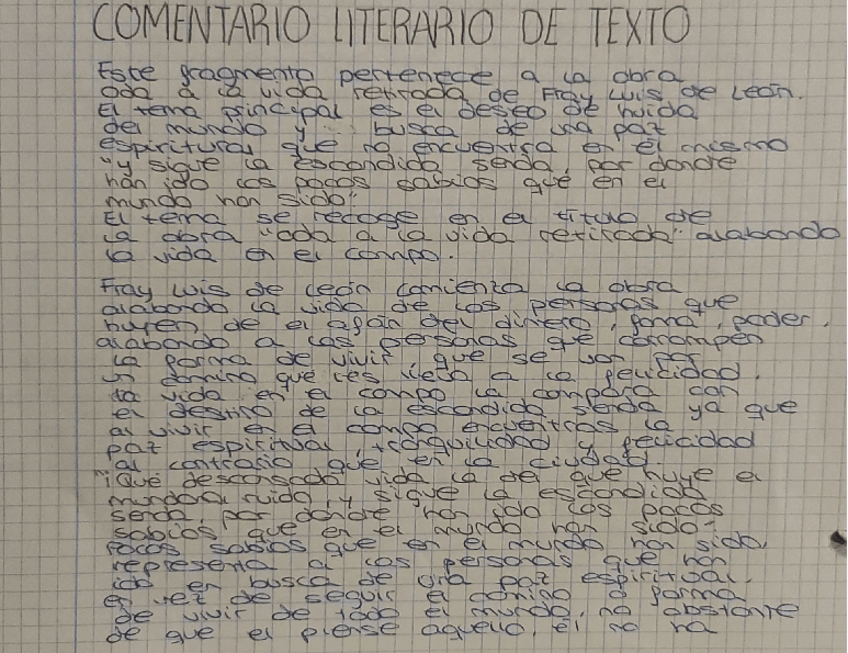 COMENTARIO LITERARIO DE TEXTO
Este fragmento pertenece a la obra
oda a la vida retirada, de Fray Luis de León.
El tema principal es el deseo de huida
del mundo y busca de una paz
espiritual que no encuentra en él mismo
"y sigue la escondida senda, por donde
han ido los pocos sabios que en el
mundo han sido".
El tema se recoge en el titulo de
la obra "oda a la vida retirada" alabando
la vida en el campo.
Fray Luis de León comienza la obra
alabando la vida de las personas que
huyen, de el afán del dinero, fama, poder,
alabando a las personas que corrompen
la forma de vivir, que se van por
un camino que les lleva a la felicidad.
La vida en el campo la compara con
el destino de la escondida senda ya que
al vivir en el campo encuentras la
paz espiritual, tranquilidad y felicidad
al contrario que en la ciudad.
"¡Qué descansada vida la del que huye el
mundanal ruido, y sigue la escondida
senda, por donde han ido los pocos
sabios que en el mundo han sido".
Pocos sabios que en el mundo han sido,
representa a las personas que han
ido en busca de una paz espiritual,
en vez de seguir el camino o forma
de vivir de todo el mundo, no obstante
de que el piense aquello, él no ha